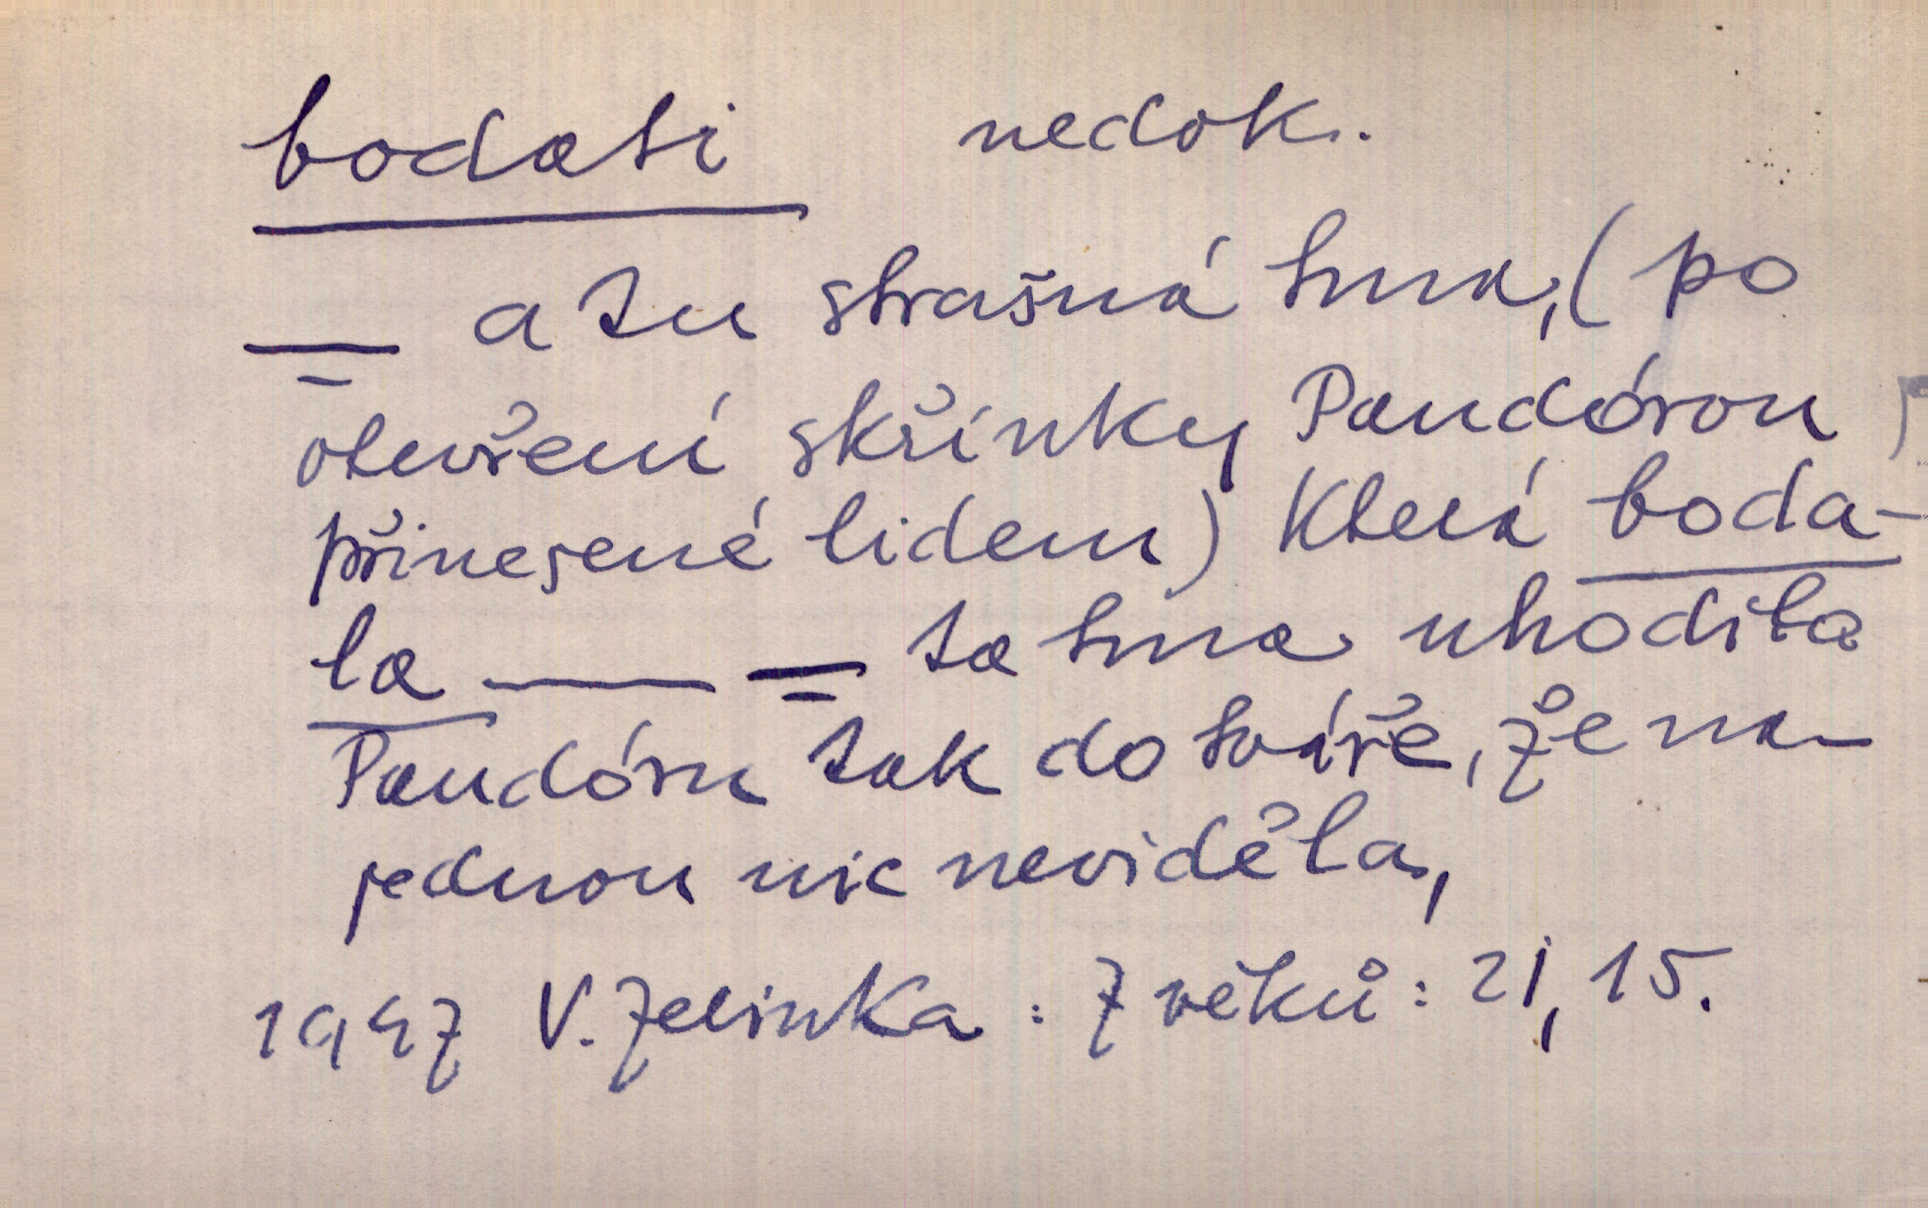 bodati nedok.
— a tu strašná tma, (po
otevření skřínky Pandórou
přinesené lidem) která boda-
la — — ta tma uhodila
Pandóru tak do tváře, že na-
jednou nic neviděla,
1947 V. Zelinka : Z věků : 21, 15.